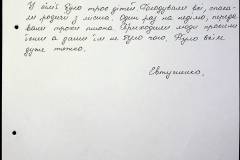 У сім'ї було троє дітей. Голодували всі, спаса-
ли родичі з міста. Один раз на неділю, переда-
вали трохи пшона. Приходили люди просили
їсти а дати їм не було чого. Було всім
дуже тяжко.
Євтушенко.